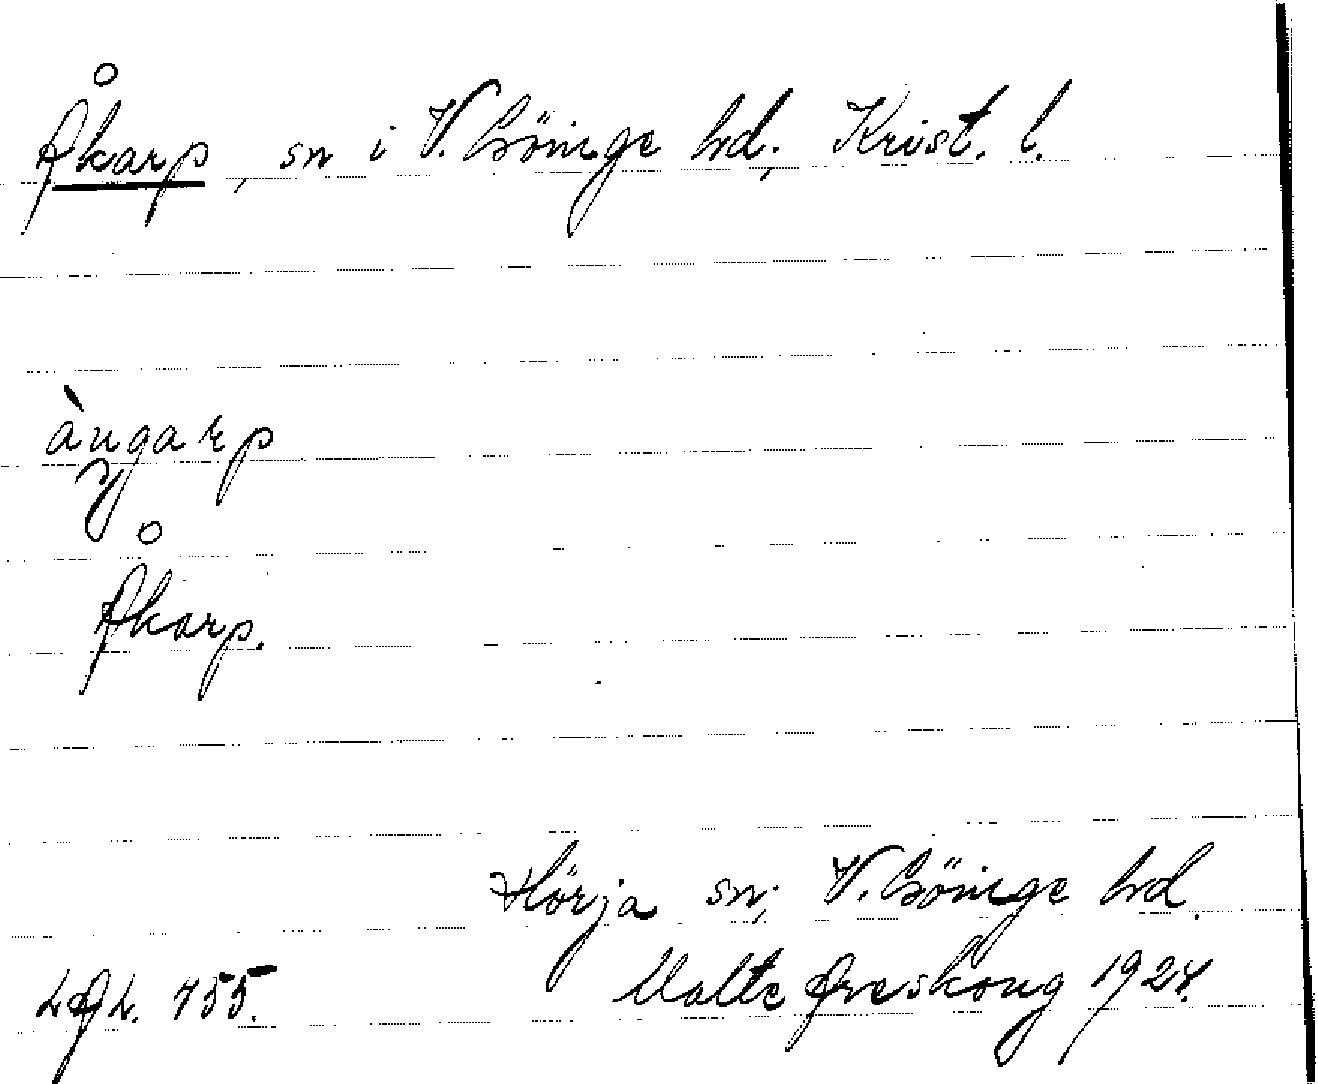 Åkarp, sn i V. Göinge hd; Krist. l.
àugarp
Åkarp.
Hörja sn; V. Göinge hd.
LAL. 755. Malte Areskoug 1924.